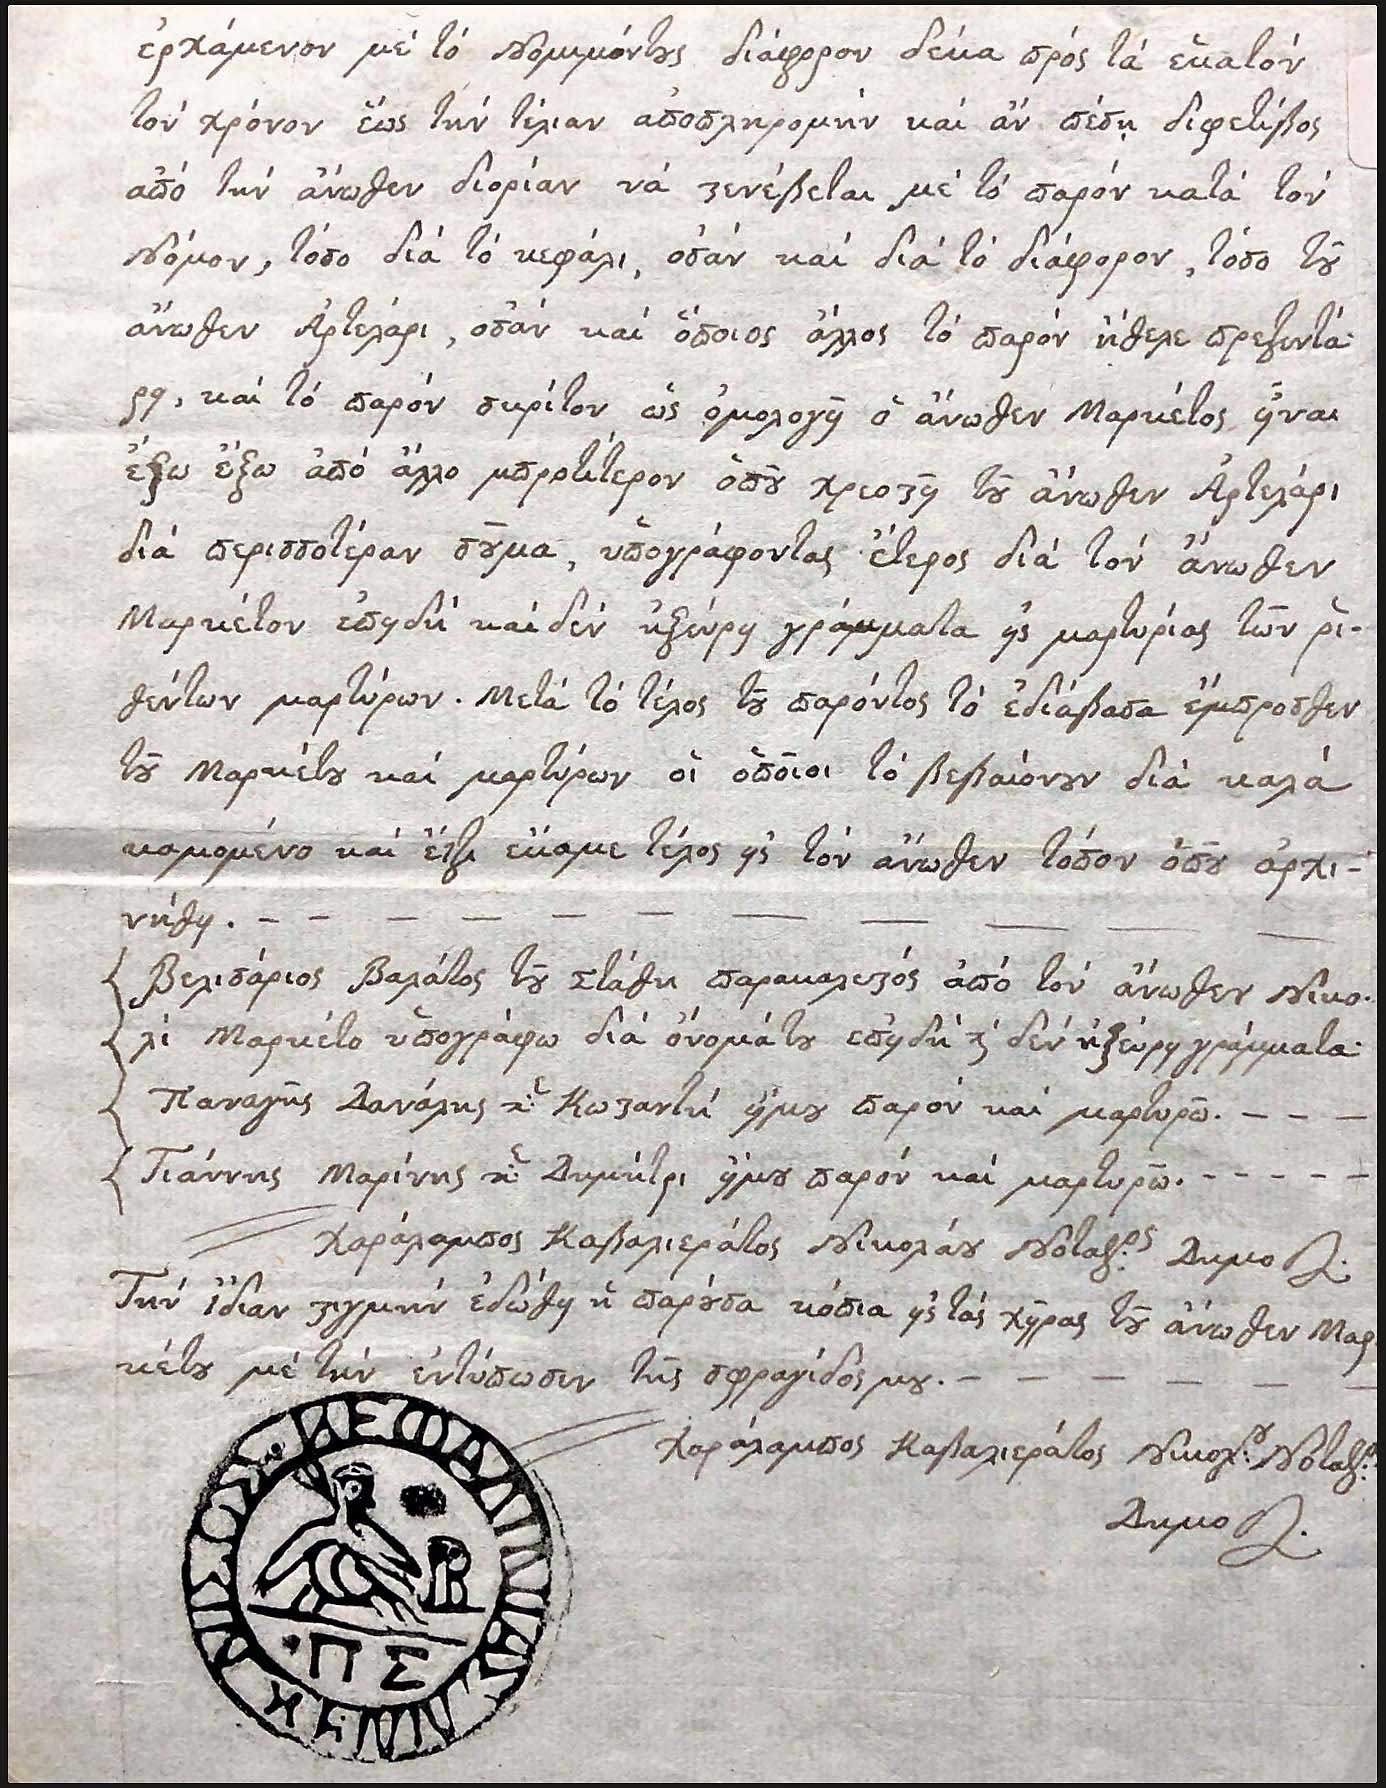 ἐρχάμενον μέ τό νομιμόντȣς διάφορον δέκα πρός τά ἑκατόν
τόν χρόνον ἕως τήν τέλιαν ἀποπληρομήν καί ἄν πέσῃ διφετίβος
ἀπό τήν ἄνωθεν διορίαν νά στενέβεται μέ τό παρόν κατά τόν
Νόμον, τόσο διά τό κεφάλι, ὁσάν καί διά τό διάφορον, τόσο τȣ͂
ἄνωθεν Ἀρτελάρι, ὁσάν καί ὅποιος ἄλλος τό παρόν ἤθελε πρεζεντά-
ρη, καί τό παρόν σκρίτον ὡς ὁμολογῇ ὁ ἄνωθεν Μαρκέτος ἦναι
ἔξω ἔξω ἀπό ἄλλο μπροτίτερον ὁπȣ͂ χρεοστῇ τȣ͂ ἄνωθεν Ἀρτελάρι
διά περισσοτέραν σȣ͂μα, ὑπογράφοντας ἕτερος διά τόν ἄνωθεν
Μαρκέτον ἐπηδή καί δέν ἠξεύρη γράμματα ἠς μαρτυρίας τῶν ῥι-
θέντων μαρτύρων. Μετά τό τέλος τȣ͂ παρόντος τό ἐδιάβασα ἔμπροσθεν
τȣ͂ Μαρκέτȣ καί μαρτύρων οἱ ὁποῖοι τό βεβαιόνȣν διά καλά
καμομένο καί ἔτζι ἔκαμε τέλος ἠς τόν ἄνωθεν τόπον ὁπȣ͂ ἀρχι-
νήθη. – – – – – – – – – – –
Βελισάριος Βαλάτος τȣ͂ Στάθη παρακαλεστός ἀπό τόν ἄνωθεν Νικο-
λί Μαρκέτο ὑπογράφω διά ὀνομάτȣ ἐπηδή ϗ δέν ἠξεύρη γράμματα.
Παναγῆς Δανάλης Κωσταντή ἤμȣ παρόν καί μαρτυρῶ. – – –
Γιάννης Μαρίνης Δημήτρι ἤμȣ παρόν καί μαρτυρῶ. – – – – –
Χαράλαμπος Καβαλιεράτος Νικολάȣ Νοταρος Δημο
Τήν ἴδιαν στιγμήν ἐδώθη ἡ παρȣ͂σα κόπια ἠς τάς χῆρας τȣ͂ ἄνωθεν Μαρ-
κέτȣ μέ τήν ἐντύπωσιν τῆς σφραγίδος μȣ. – – – – – –
Χαράλαμπος Καβαλιεράτος Νικολ:ȣ Νοταρ:ος
Δημο
ΚΕΦΑΛΙΝΙΑ
Π Σ